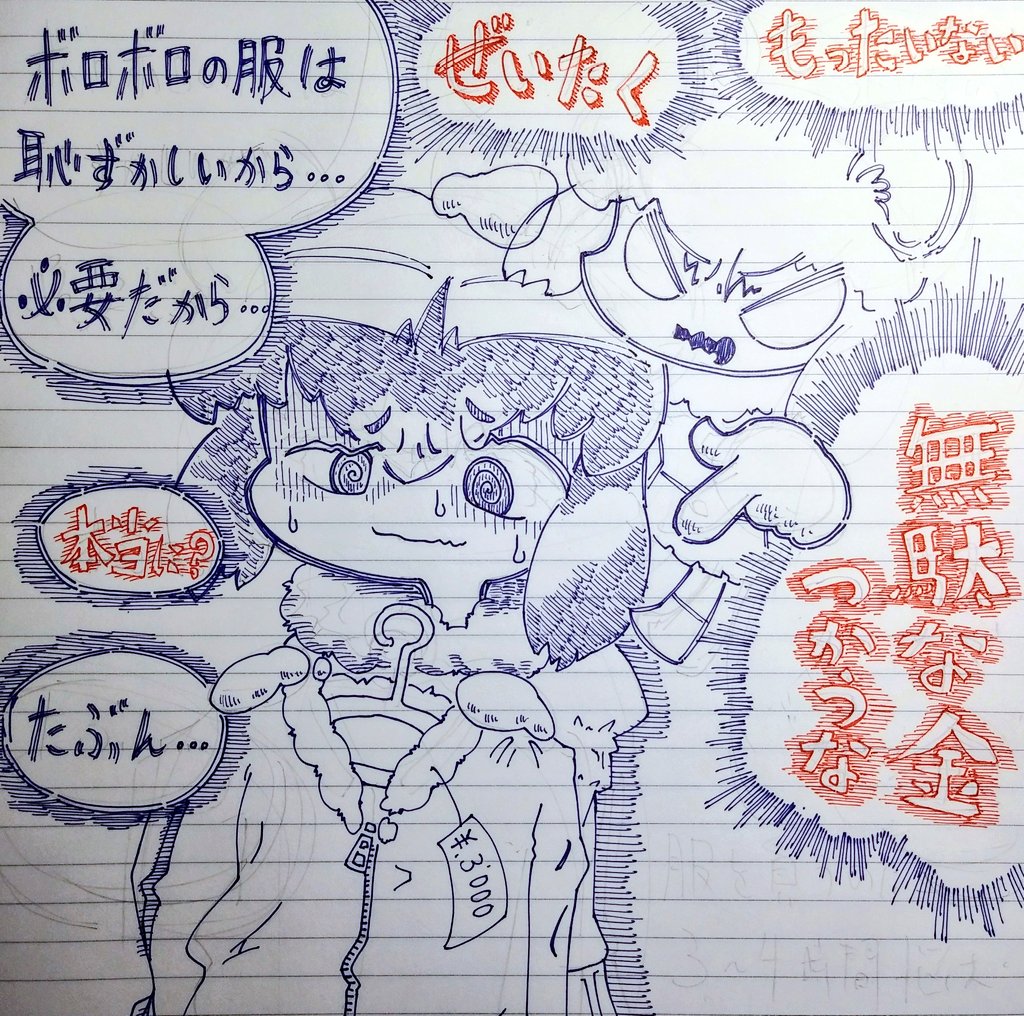 もったいない
ぜいたく
ボロボロの服は
恥ずかしいから…
必要だから…
無駄な金
つかうな
本当に?
たぶん…
¥.3'000